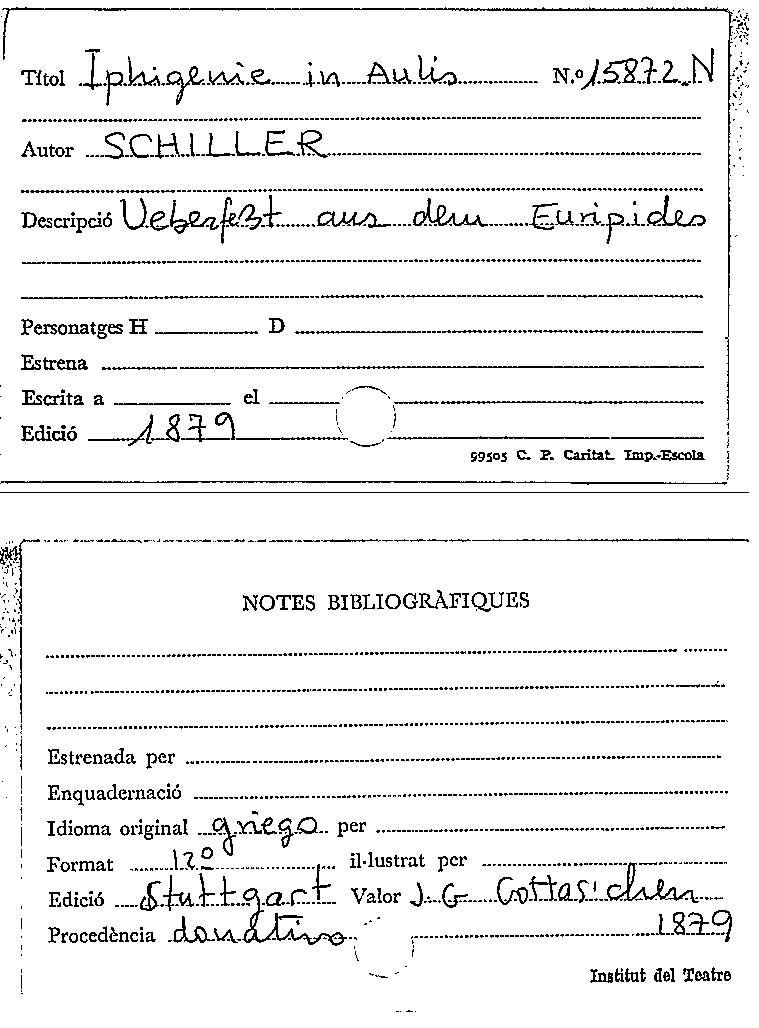 Títol Iphigenie in Aulis N.º 15872 N
Autor SCHILLER
Descripció Ueberfeßt aus dem Euripides
Personatges H D
Estrena
Escrita a el
Edició 1879
99505 C. P. Caritat. Imp.-Escola
NOTES BIBLIOGRÀFIQUES
Estrenada per
Enquadernació
Idioma original griego per
Format 12º il·lustrat per
Edició Stuttgart Valor J. G Cottas'chen
Procedència donativo 1879
Institut del Teatre